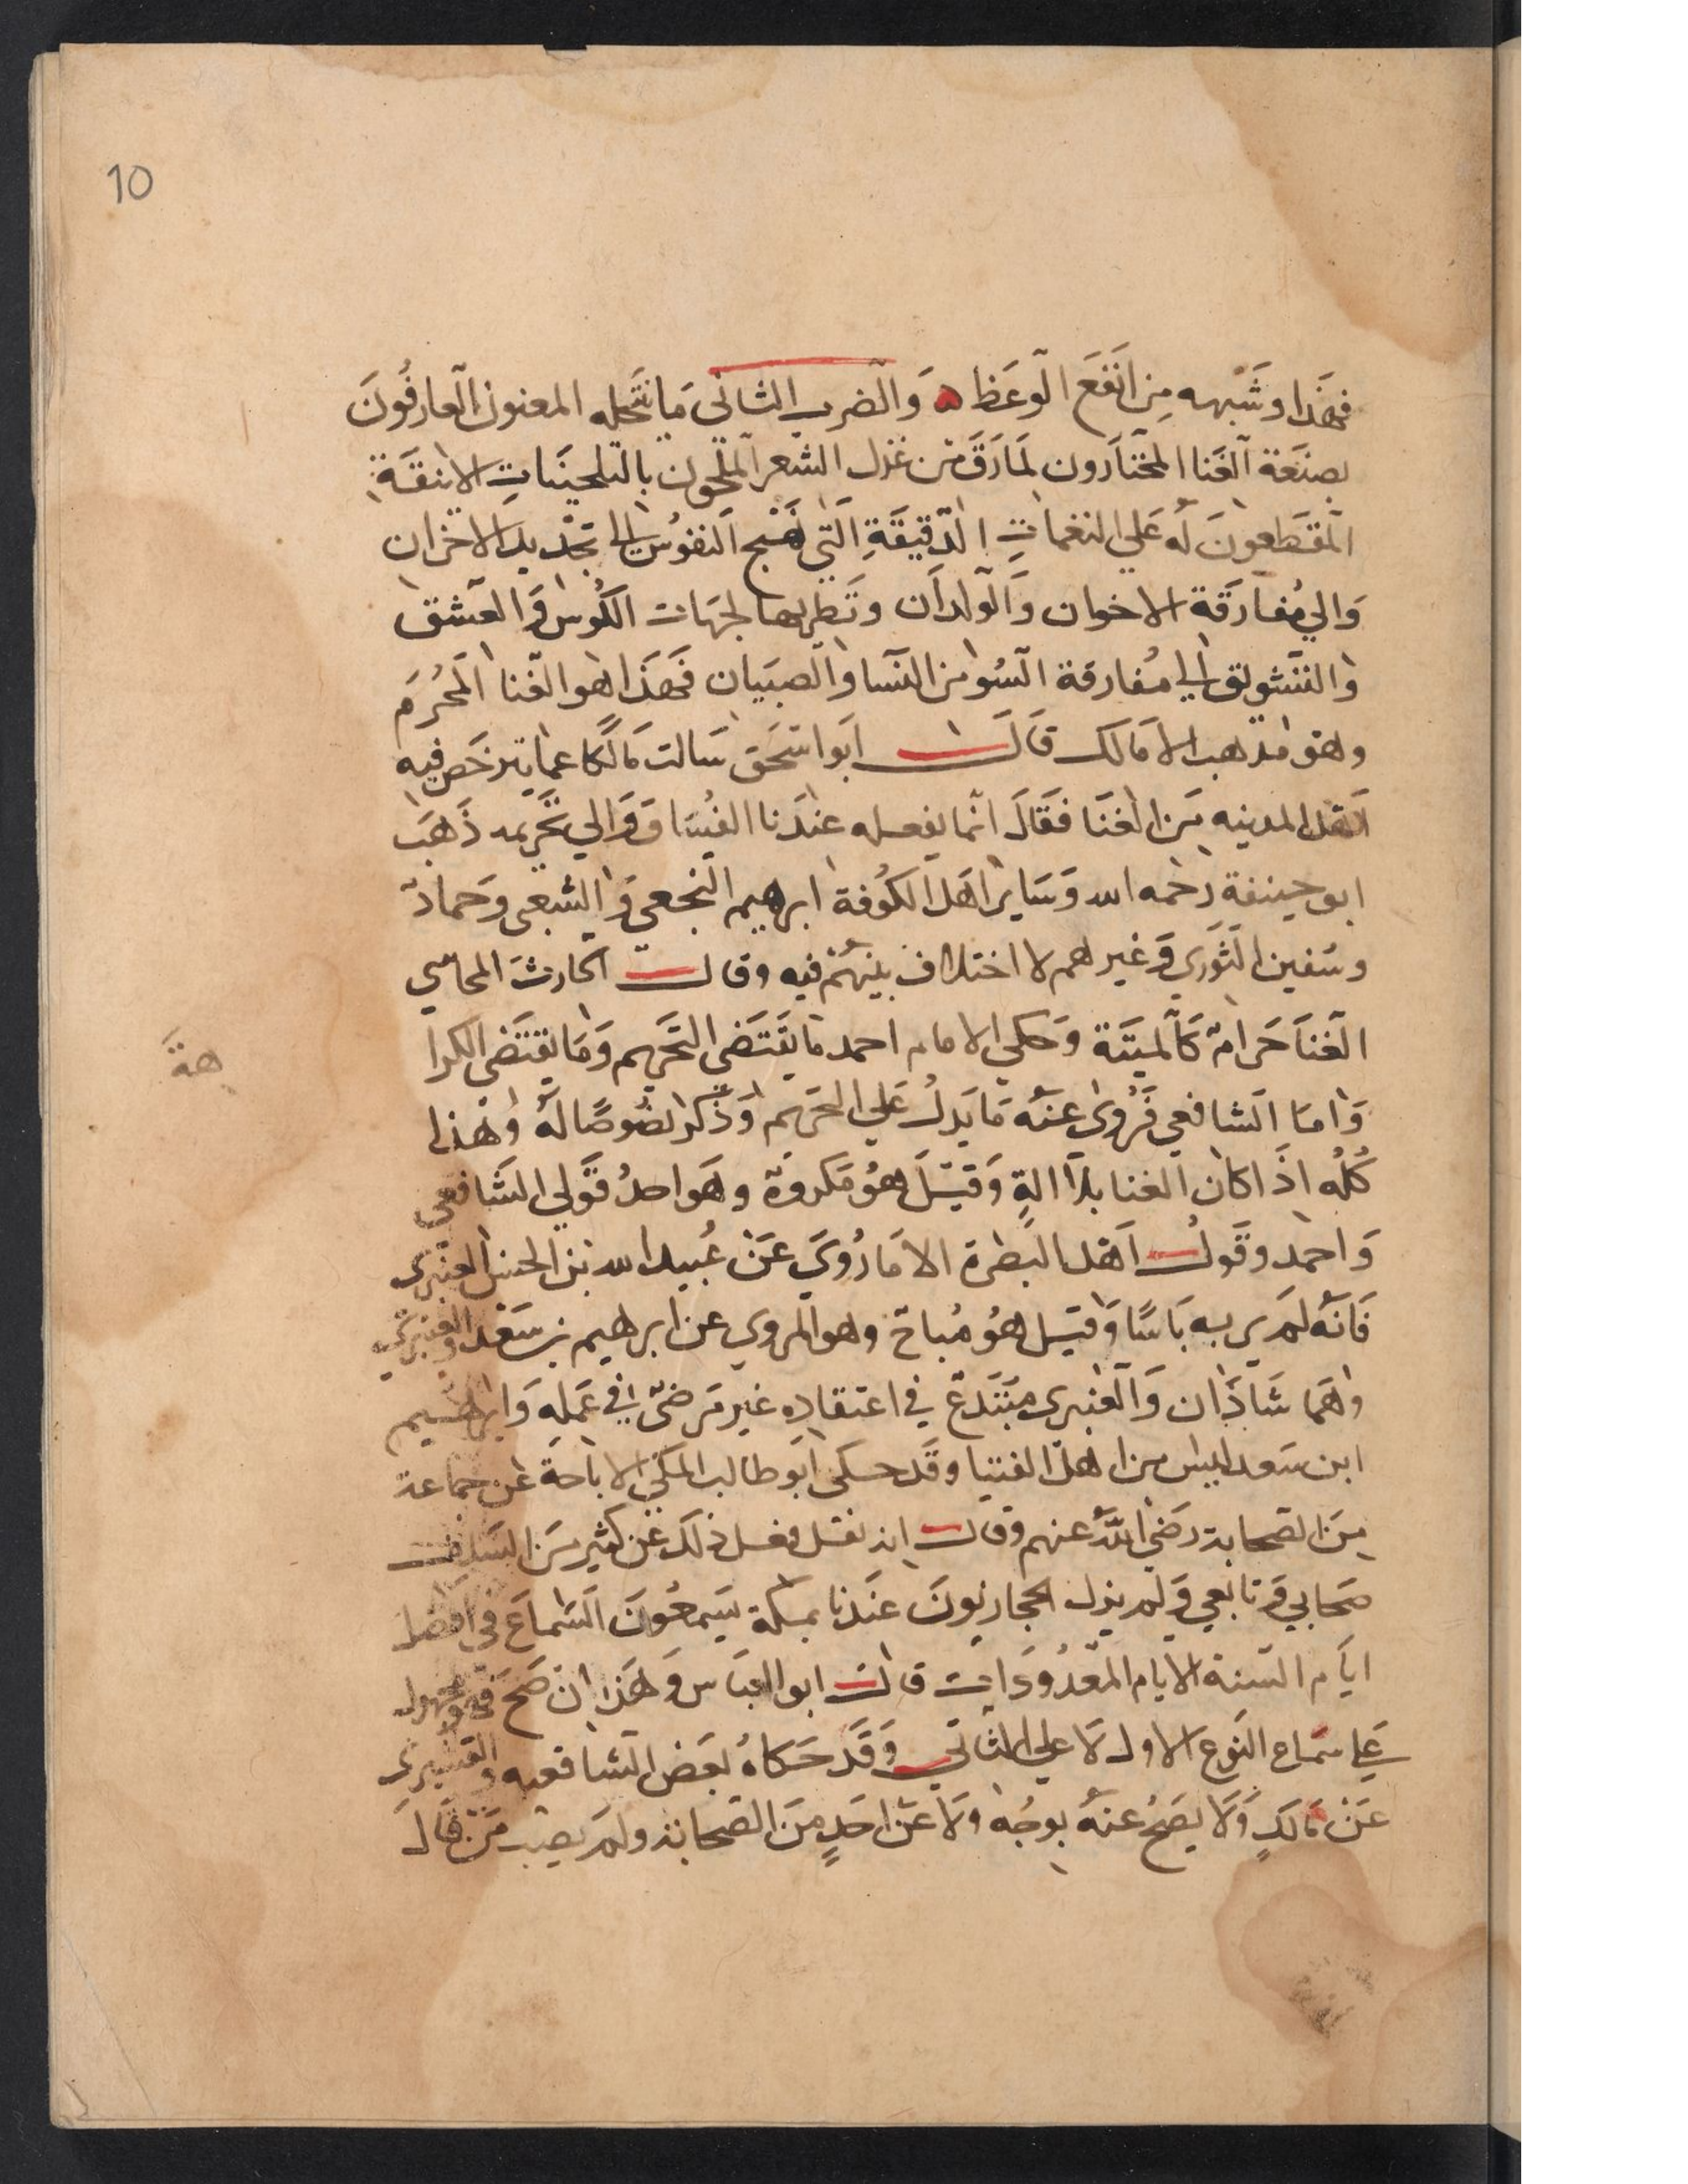 10
فهذا وشبهه من انفع الوعظ ۵ والضرب الثاني ما ينتحله المغنون العارفون
بصنعة الغنا المختارون لما رق من غزل الشعر الملحون بالتلحينات الانيقة
المقطعون له علي النغمات الدقيقة التي تهيج النفوس الي تجديد الاحزان
والي مفارقة الاخوان والولدان وتطربها لجهات الكوس والعشق
والتشويق الي مفارقة السو من النسا والصبيان فهذا هو الغنا المحرم
وهو مذهب الامالك قال ابو اسحق سالت مالكا عما يترخص فيه
اهل المدينه من الغنا فقال انما يفعله عندنا الفساق والي تحريمه ذهب
ابو حنيفة رحمه الله وساير اهل الكوفة ابرهيم النخعي والشعبي وحماد
وسفين الثوري وغيرهم لا اختلاف بينهم فيه وقال الحارث المحاسبي
الغنا حرام كالميتة وحكي الامام احمد ما يقتضي التحريم وما يقتضي الكرا
هة
واما الشافعي فروي عنه ما يدل علي التحريم وذكر نصوصا له وهذا
كله اذا كان الغنا بلا الة وقيل هو مكروه وهو احد قولي الشافعي
واحمد وقول اهل البصرة الا ما روي عن عبيد الله بن الحسن العنبري
فانه لم ير به باسا وقيل هو مباح وهو المروي عن ابرهيم بن سعد والعنبري
وهما شاذان والعنبري مبتدع في اعتقاده غير مرضي في عمله وابرهيم
ابن سعد ليس من اهل الفتيا وقد حكي ابو طالب المكي الاباحة عن جماعة
من الصحابة رضي الله عنهم وقال انه نقل فعل ذلك عن كثير من السلف
صحابي وتابعي ولم يزل الحجازيون عندنا بمكة يسمعون السماع في افضل
ايام السنة الايام المعدودات قال ابو العباس وهذا ان صح فمحمول
علي سماع النوع الاول لا علي الثاني وقد حكاه بعض الشافعيه والقشيري
عن مالك ولا يصح عنه بوجه ولا عن احد من الصحابة ولم يصب من قال